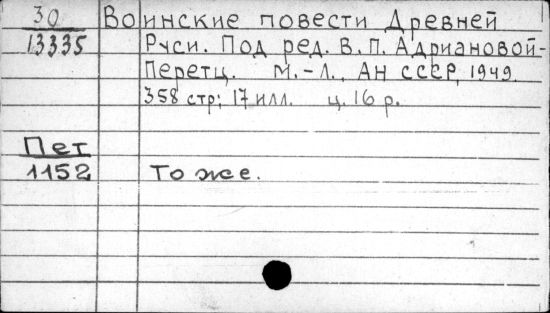 30 Воинские повести Древней
13335 Руси. Под ред. В. П. Адриановой-
Перетц. М.-Л., АН СССР, 1949.
358 стр; 17 илл. ц. 16 р.
Пет
1152 То же.